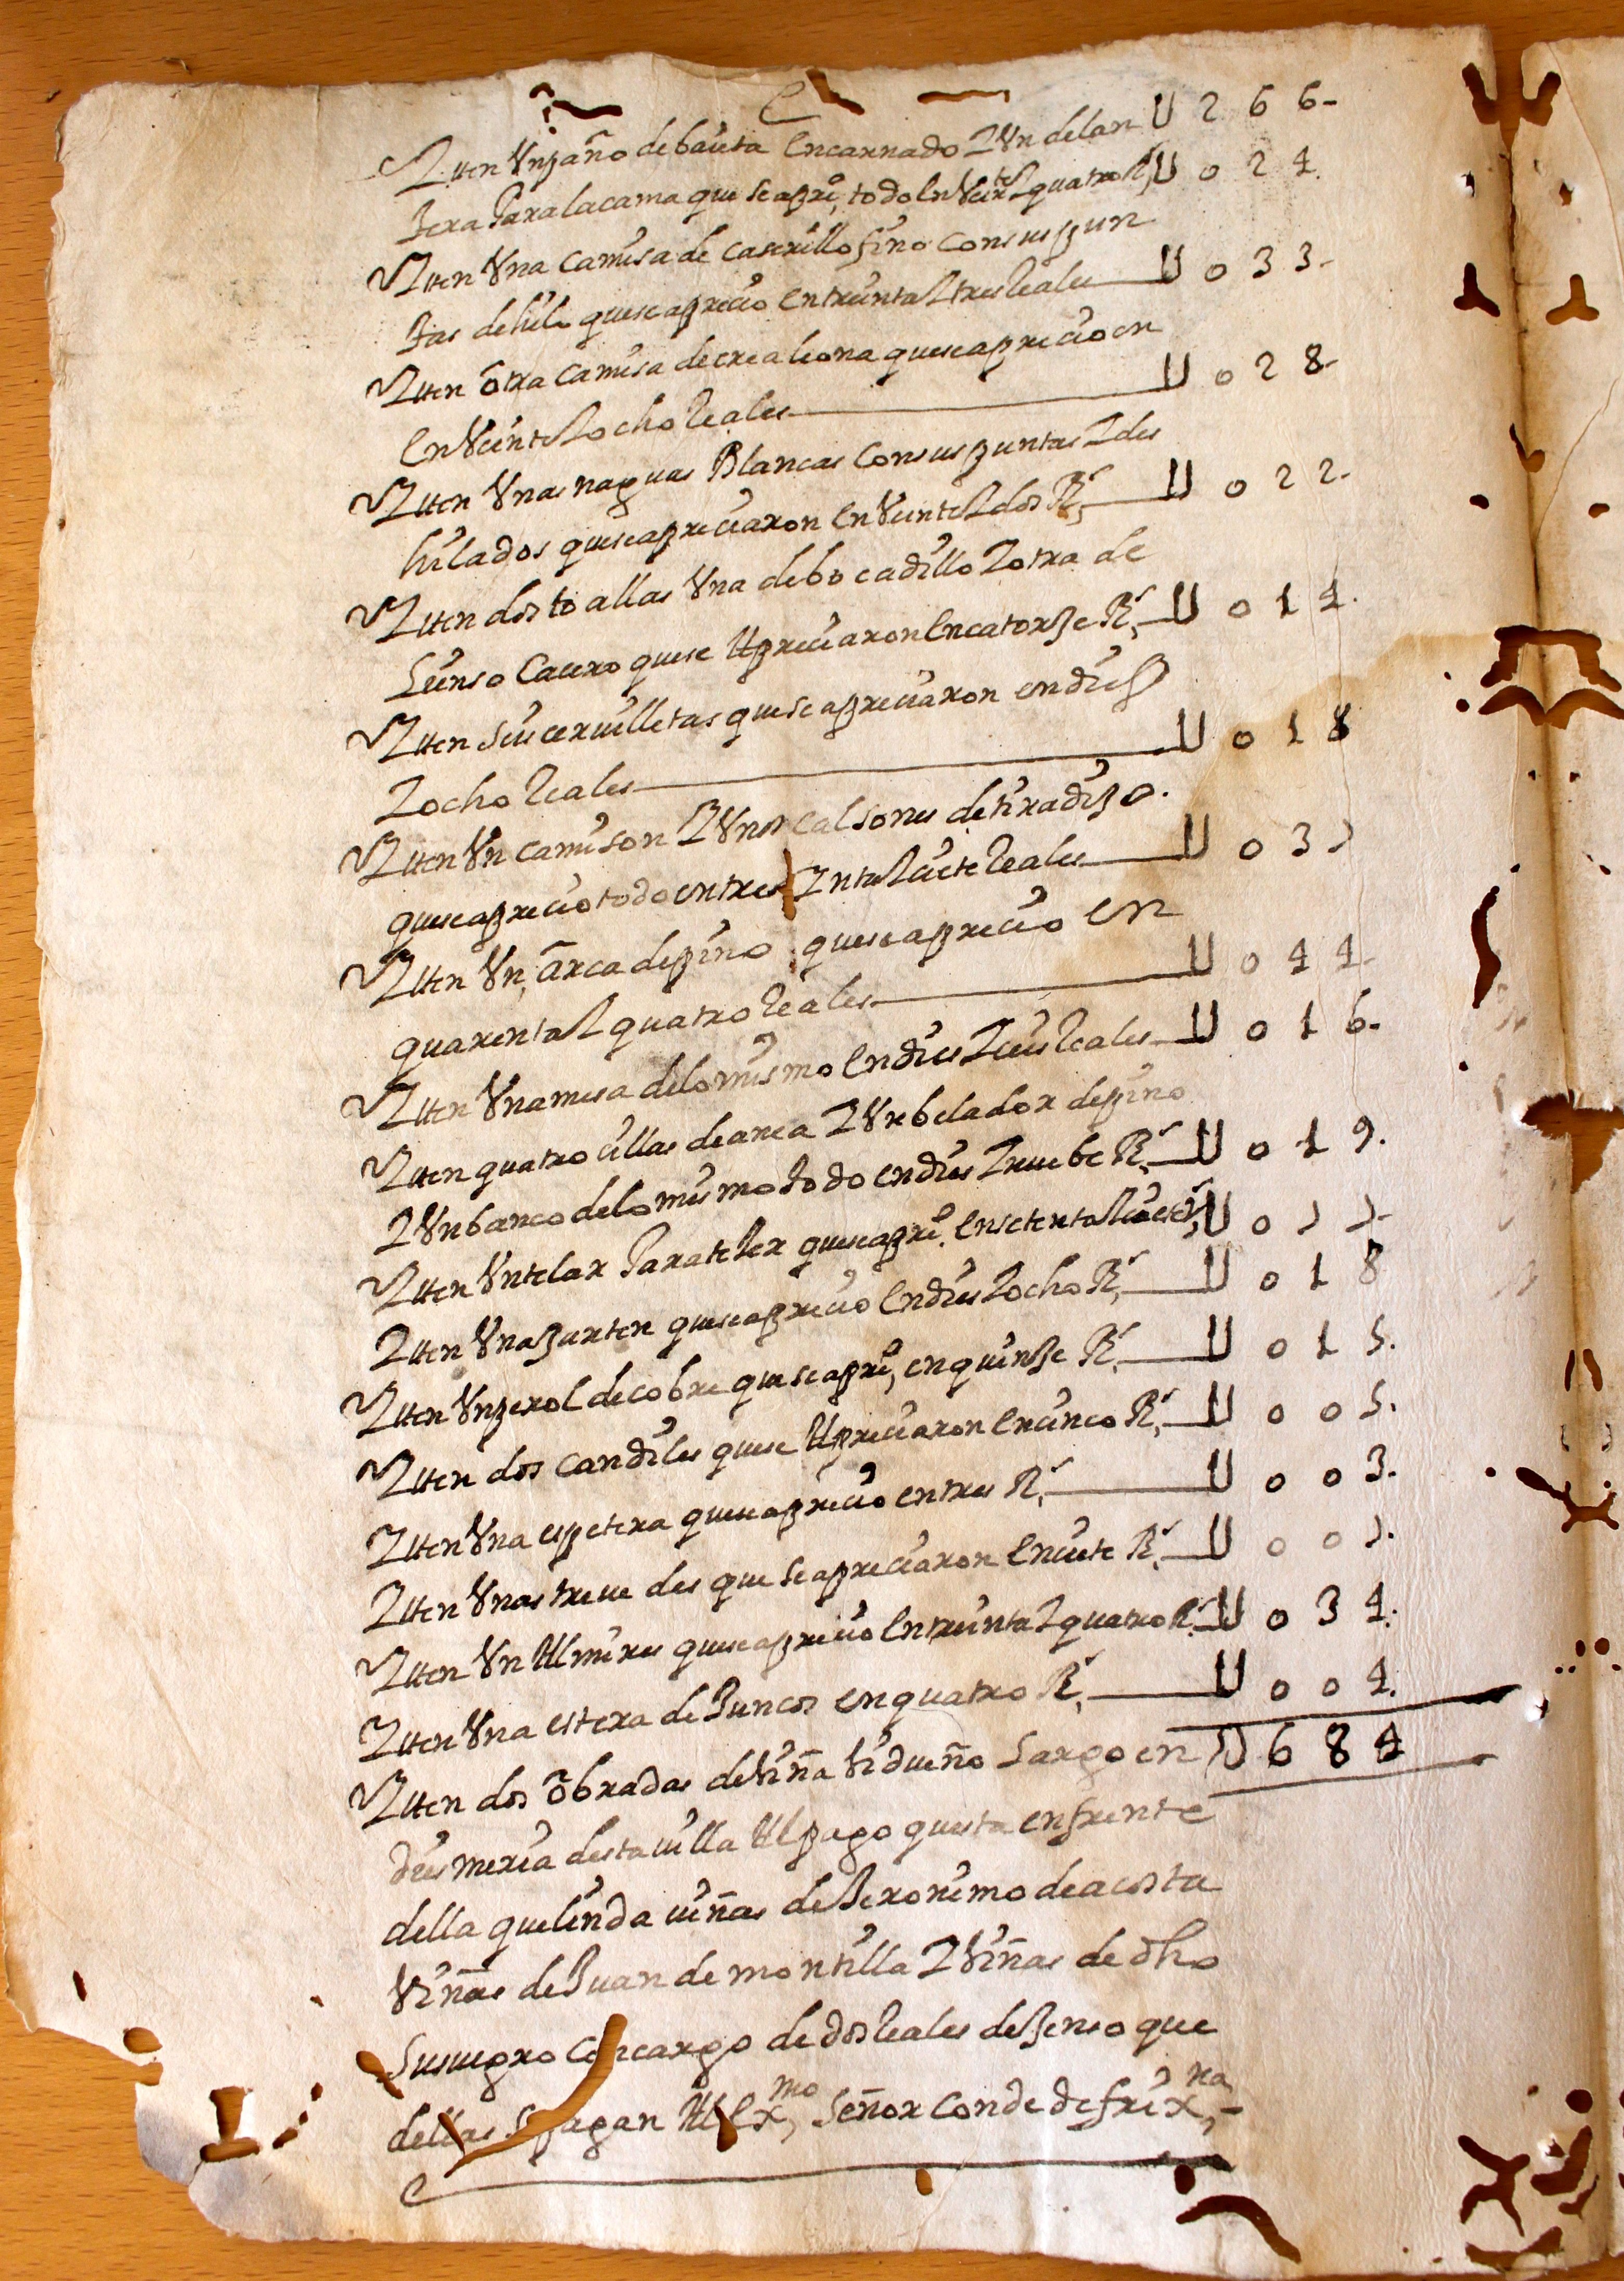 U 2 6 6 -
Iten Vn paño de bauta encarnado I Vn delan
tera para la cama que se apreº, todo en Veinte I quatro Rs, U 0 2 4.
Iten Vna camisa de caserillo fino con sus pun
tas de hilo que se aprecio en treinta I tres reales U 0 3 3 -
Iten otra camisa de crea leona que se aprecio en
en Veinte I ocho reales U 0 2 8 -
Iten Vnas naguas Blancas con sus puntas I des
hilados que se apreciaron en Veinte I dos Rs, U 0 2 2 -
Iten dos toallas Vna de bocadillo I otra de
Lienso Casero que se Apreciaron en catorze Rs, U 0 1 4.
Iten seis cervilletas que se apreciaron en diez
I ocho reales U 0 1 8
Iten Vn camison I Vnos calsones de tiradizo.
que se aprecio todo en tres Inta I ciete reales U 0 3 7
Iten Vn, arca de pino que se aprecio en
quarenta I quatro reales U 0 4 4 -
Iten Vna mesa de lo mismo en dies I ceis reales U 0 1 6 -
Iten quatro cillas de anea I Vn belador de pino
I Vn banco de lo mismo todo en dies I nuebe Rs, U 0 1 9.
Iten Vn telar para texer que se apreº, en setenta I ciete rs, U 0 7 7 -
Iten Vna zarten que se aprecio en dies I ocho Rs, U 0 1 8
Iten Vn perol de cobre que se apreº, en quinze Rs, U 0 1 5.
Iten dos candiles que se Apreciaron en cinco Rs, U 0 0 5.
Iten Vna espetera que se aprecio en tres Rs, U 0 0 3.
Iten Vnas treuedes que se apreciaron en ciete Rs, U 0 0 7.
Iten Vn Almires que se aprecio en treinta I quatro Rs, U 0 3 4.
Iten Vna estera de Juncos en quatro Rs, U 0 0 4.
Iten dos obradas de Viña Vidueño Largo en U 6 8 4
diesmeria desta uilla Al pago que esta en frente
della que linda uiñas de Jeronimo de acosta
Viñas de Juan de montilla I Viñas de dho
su suegro con cargo de dos reales de zenso que
dellas se pagan Al Exmo, Señor Conde de frixna, -